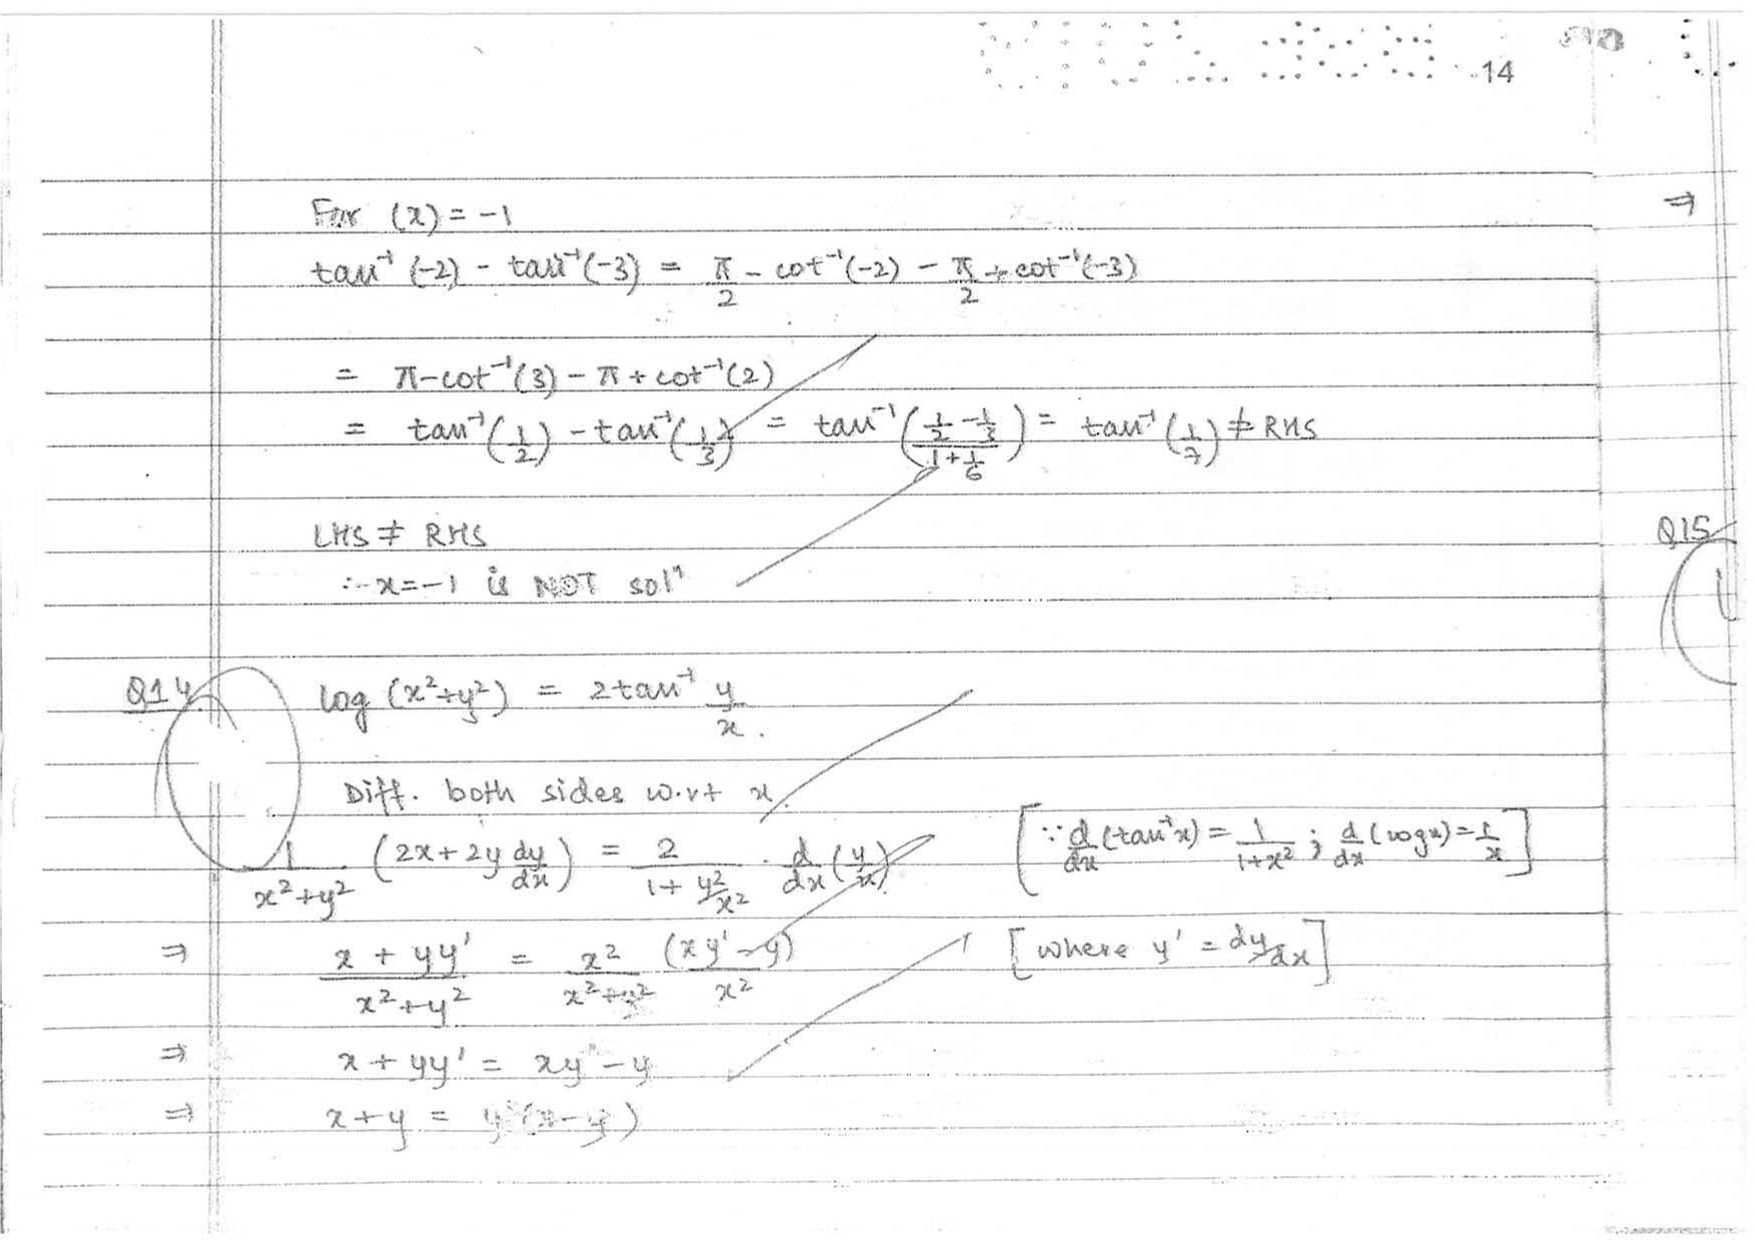 14
For (x) = -1
tan⁻¹(-2) - tan⁻¹(-3) = π/2 - cot⁻¹(-2) - π/2 + cot⁻¹(-3)
= π - cot⁻¹(3) - π + cot⁻¹(2)
= tan⁻¹(1/2) - tan⁻¹(1/3) = tan⁻¹((1/2 - 1/3)/(1 + 1/6)) = tan⁻¹(1/7) ≠ RHS
LHS ≠ RHS
∴ x = -1 is NOT solⁿ
Q14. log (x²+y²) = 2 tan⁻¹ y/x.
Diff. both sides w.r.t x.
1/(x²+y²) (2x + 2y dy/dx) = 2/(1 + y²/x²) . d/dx (y/x) [∵ d/dx (tan⁻¹x) = 1/(1+x²) ; d/dx (log x) = 1/x]
⇒ (x + yy')/(x²+y²) = x²/(x²+y²) (xy' - y)/x² [where y' = dy/dx]
⇒ x + yy' = xy' - y
⇒ x + y = y'(x - y)
⇒
Q15